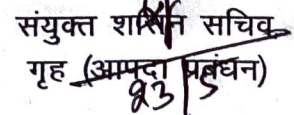 संयुक्त शासन सचिव
गृह (आपदा प्रबंधन)
23/5